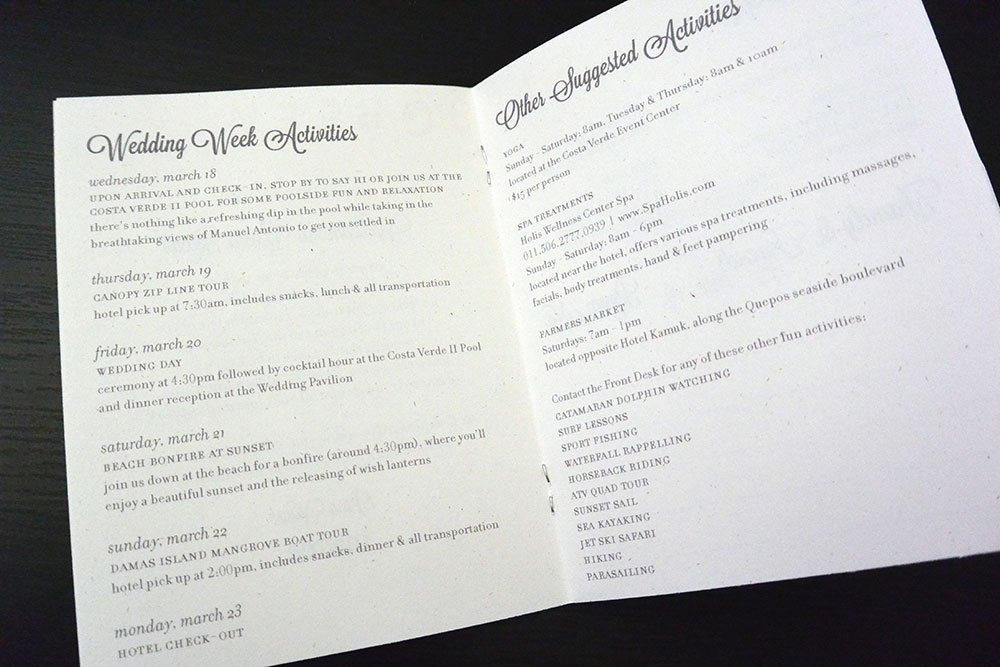 Wedding Week Activities
wednesday, march 18
UPON ARRIVAL AND CHECK-IN, STOP BY TO SAY HI OR JOIN US AT THE
COSTA VERDE II POOL FOR SOME POOLSIDE FUN AND RELAXATION
there's nothing like a refreshing dip in the pool while taking in the
breathtaking views of Manuel Antonio to get you settled in
thursday, march 19
CANOPY ZIP LINE TOUR
hotel pick up at 7:30am, includes snacks, lunch & all transportation
friday, march 20
WEDDING DAY
ceremony at 4:30pm followed by cocktail hour at the Costa Verde II Pool
and dinner reception at the Wedding Pavilion
saturday, march 21
BEACH BONFIRE AT SUNSET
join us down at the beach for a bonfire (around 4:30pm), where you'll
enjoy a beautiful sunset and the releasing of wish lanterns
sunday, march 22
DAMAS ISLAND MANGROVE BOAT TOUR
hotel pick up at 2:00pm, includes snacks, dinner & all transportation
monday, march 23
HOTEL CHECK-OUT
Other Suggested Activities
YOGA
Sunday - Saturday: 8am, Tuesday & Thursday: 8am & 10am
located at the Costa Verde Event Center
$15 per person
SPA TREATMENTS
Holis Wellness Center Spa
011.506.2777.0939 | www.SpaHolis.com
Sunday - Saturday: 8am - 6pm
located near the hotel, offers various spa treatments, including massages,
facials, body treatments, hand & feet pampering
FARMERS MARKET
Saturdays: 7am - 1pm
located opposite Hotel Kamuk, along the Quepos seaside boulevard
Contact the Front Desk for any of these other fun activities:
CATAMARAN DOLPHIN WATCHING
SURF LESSONS
SPORT FISHING
WATERFALL RAPPELLING
HORSEBACK RIDING
ATV QUAD TOUR
SUNSET SAIL
SEA KAYAKING
JET SKI SAFARI
HIKING
PARASAILING